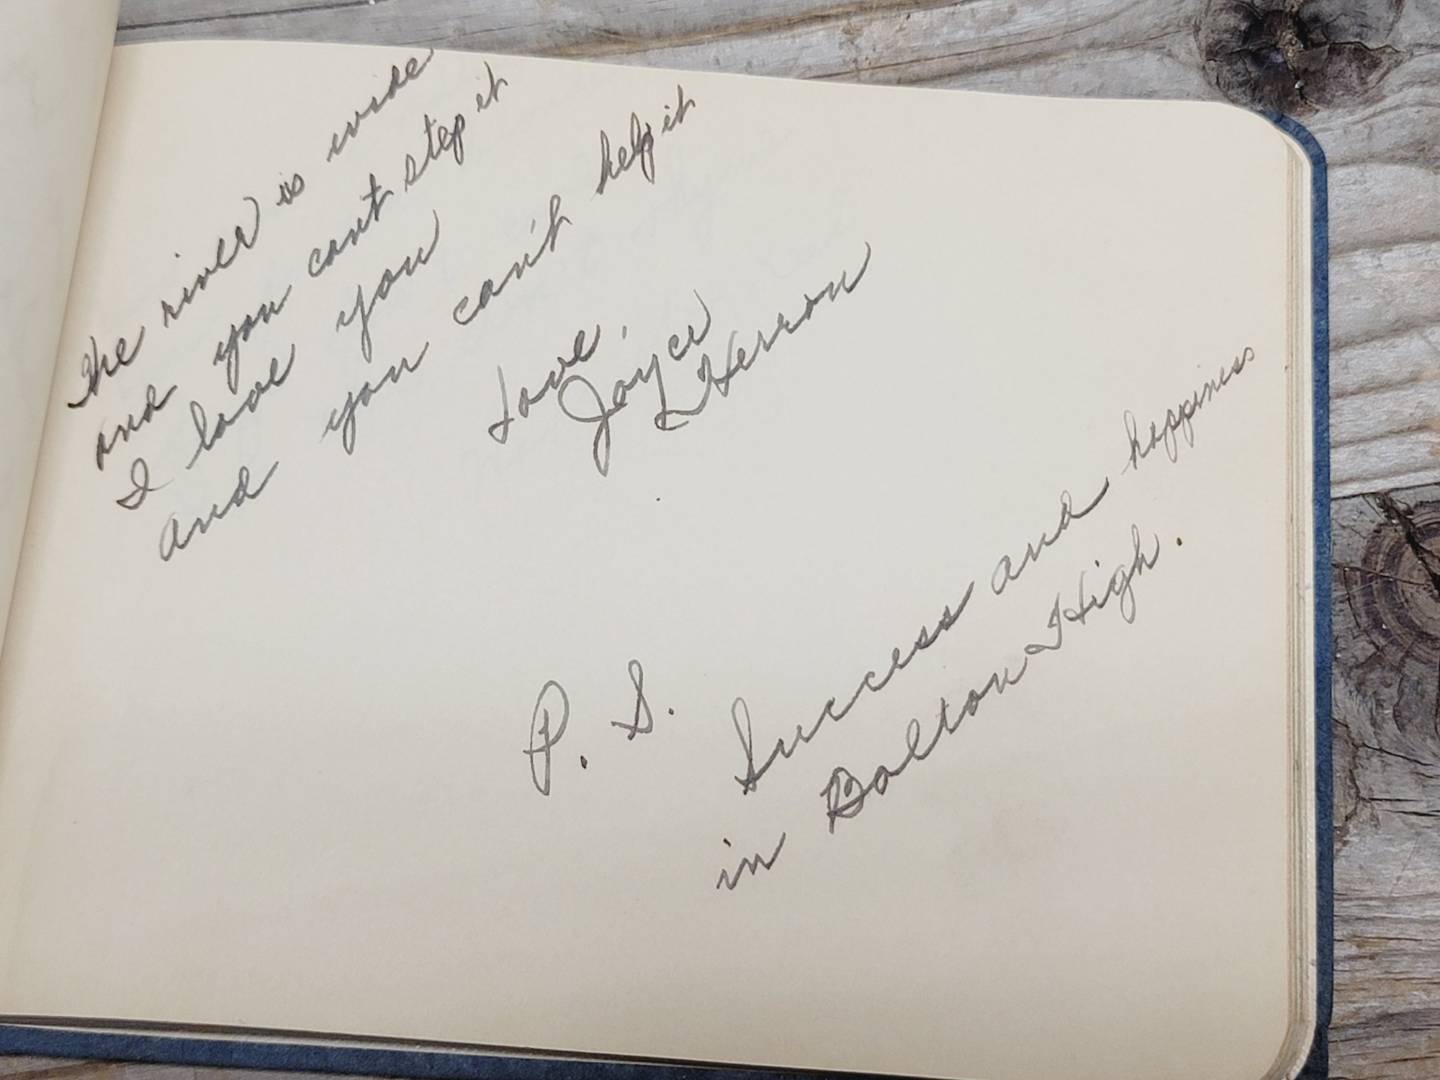 The river is wide
and you cant step it
I love you
and you can't help it
Love,
Joyce
Herron
P. S. Success and happiness
in Bolton High.